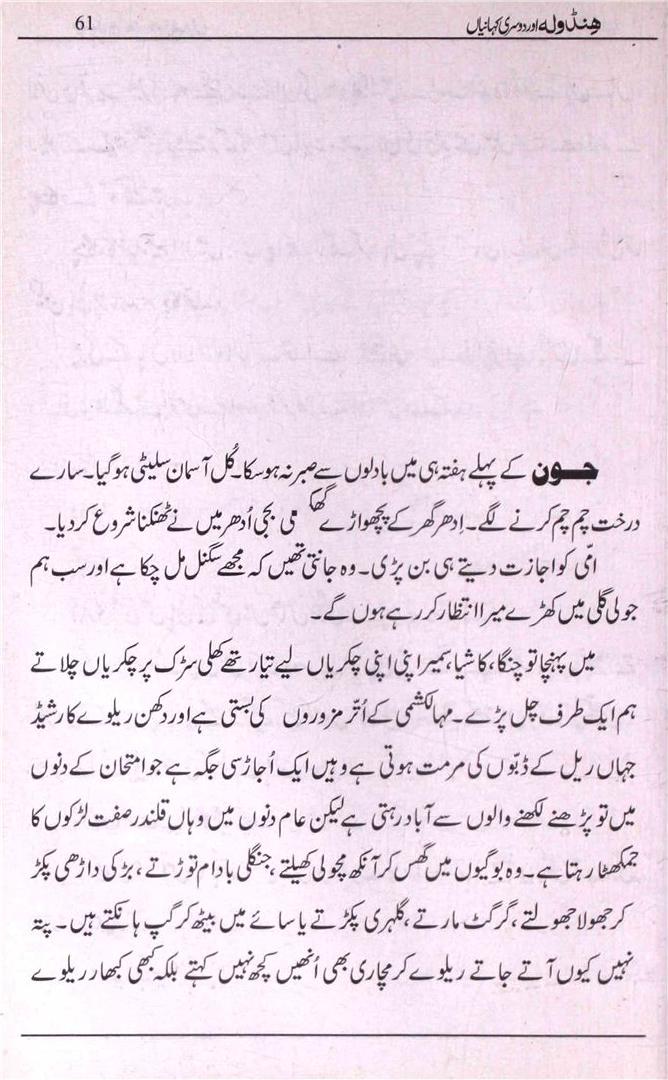 ھنڈولہ اور دوسری کہانیاں 61
جون کے پہلے ہفتہ ہی میں بادلوں سے صبر نہ ہوسکا۔ کُل آسمان سلیٹی ہوگیا۔ سارے
درخت چم چم کرنے لگے۔ اِدھر گھر کے پچھواڑے گھگھی بجی اُدھر میں نے ٹھنکنا شروع کردیا۔
امّی کو اجازت دیتے ہی بن پڑی۔ وہ جانتی تھیں کہ مجھے سگنل مل چکا ہے اور سب ہم
جولی گلی میں کھڑے میرا انتظار کر رہے ہوں گے۔
میں پہنچا تو چنگا، کاشیا، ہمیر اپنی اپنی چکریاں لیے تیار تھے کھلی سڑک پر چکریاں چلاتے
ہم ایک طرف چل پڑے۔ مہالکشمی کے اُتر مزوروں کی بستی ہے اور دکھن ریلوے کا رشیڈ
جہاں ریل کے ڈبّوں کی مرمت ہوتی ہے وہیں ایک اُجاڑ سی جگہ ہے جو امتحان کے دنوں
میں تو پڑھنے لکھنے والوں سے آباد رہتی ہے لیکن عام دنوں میں وہاں قلندر صفت لڑکوں کا
جمکھٹا رہتا ہے۔ وہ بوگیوں میں گھس کر آنکھ مچولی کھیلتے، جنگلی بادام توڑتے، بڑ کی داڑھی پکڑ
کر جھولا جھولتے، گرگٹ مارتے، گلہری پکڑتے یا سائے میں بیٹھ کر گپ ہانکتے ہیں۔ پتہ
نہیں کیوں آتے جاتے ریلوے کرمچاری بھی اُنھیں کچھ نہیں کہتے بلکہ کبھی کبھار ریلوے